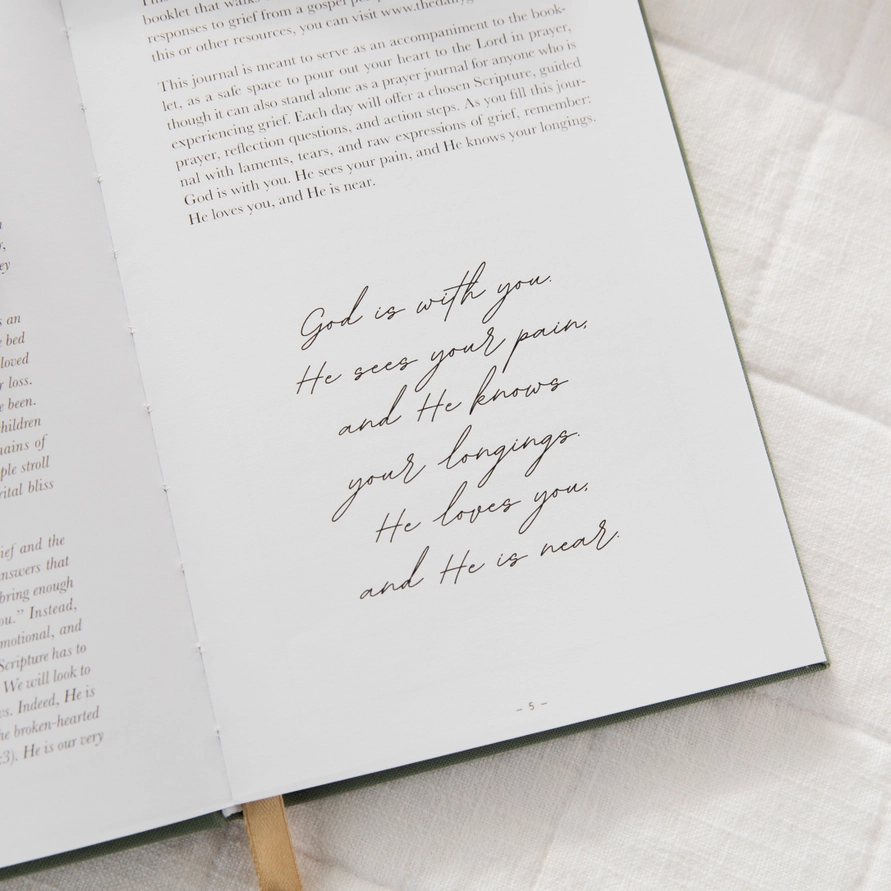 s an
bed
loved
loss.
been.
children
ains of
ple stroll
rital bliss
ief and the
nswers that
bring enough
ou.” Instead,
motional, and
Scripture has to
We will look to
s. Indeed, He is
he broken-hearted
:3). He is our very
booklet that
responses to grief from a gospel
this or other resources, you can visit
This journal is meant to serve as an accompaniment to the book-
let, as a safe space to pour out your heart to the Lord in prayer,
though it can also stand alone as a prayer journal for anyone who is
experiencing grief. Each day will offer a chosen Scripture, guided
prayer, reflection questions, and action steps. As you fill this jour-
nal with laments, tears, and raw expressions of grief, remember:
God is with you. He sees your pain, and He knows your longings.
He loves you, and He is near.
God is with you.
He sees your pain,
and He knows
your longings.
He loves you,
and He is near.
– 5 –